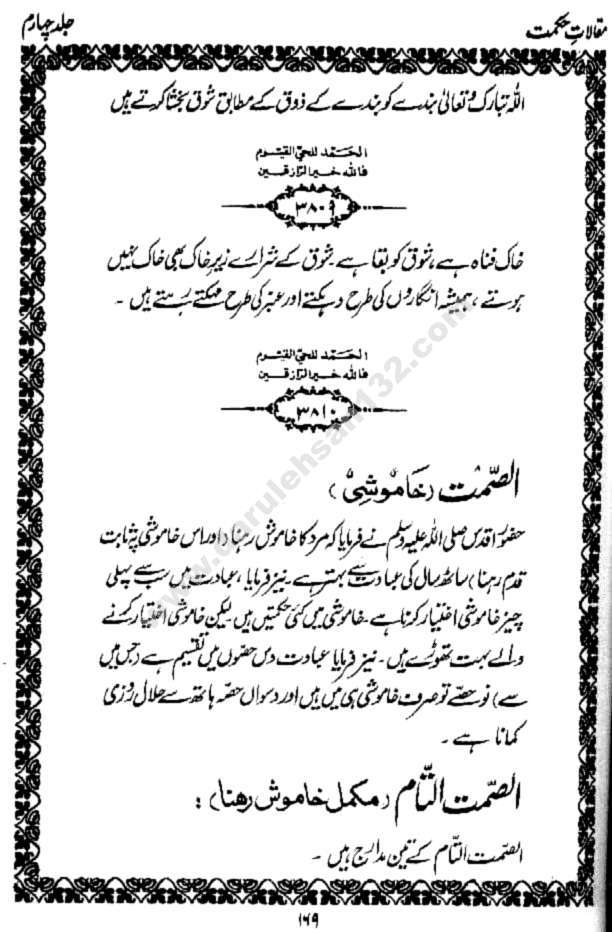 مقالاتِ حکمت
جلد چہارم
اللہ تبارک و تعالیٰ بندے کو بندے کے ذوق کے مطابق شوق بخشا کرتے ہیں
الحمد للحیّ القیّوم
فاللہ خیر الرازقین
۳۸۰۹
خاک فناہ ہے، شوق کو بقا ہے۔ شوق کے شرارے زیرِ خاک بھی خاک نہیں
ہوتے، ہمیشہ انگاروں کی طرح دہکتے اور عنبر کی طرح مہکتے رہتے ہیں۔
الحمد للحیّ القیّوم
فاللہ خیر الرازقین
۳۸۱۰
الصَّمْت (خَامُوشِیُ)
حضورِ اقدس صلی اللہ علیہ وسلم نے فرمایا کہ مرد کا خاموش رہنا (اور اس خاموشی پہ ثابت
قدم رہنا) ساٹھ سال کی عبادت سے بہتر ہے۔ نیز فرمایا، عبادت میں سب سے پہلی
چیز خاموشی اختیار کرنا ہے۔ خاموشی میں کئی حکمتیں ہیں لیکن خاموشی اختیار کرنے
والے بہت تھوڑے ہیں۔ نیز فرمایا عبادت دس حصّوں میں تقسیم ہے (جس میں
سے) نو حصّے تو صرف خاموشی ہی میں ہیں اور دسواں حصّہ ہاتھ سے حلال روزی
کمانا ہے۔
الصّمت التّام (مکمل خاموش رھنا) :
الصّمت التّام کے تین مدارج ہیں۔
۱۶۹
www.darulehsan132.com